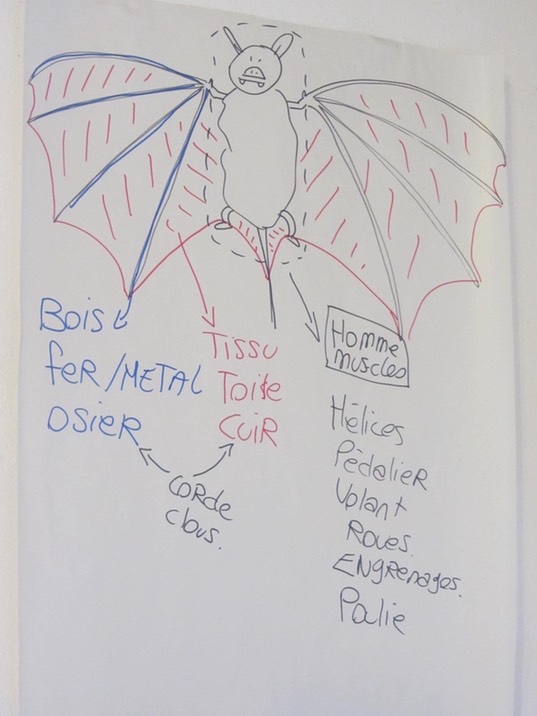 Bois
FER/METAL
OSIER
TISSU
Toile
CUIR
CORDE
clous.
Homme
muscles
Hélices
Pédalier
Volant
Roues.
ENgrenages.
Poulie